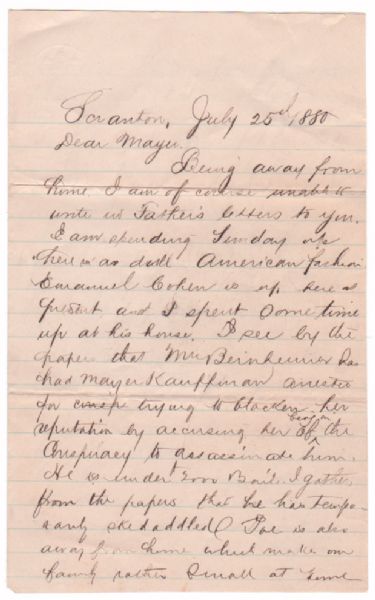 Scranton, July 25d 1880
Dear Mayer.
Being away from
home I am of course unable to
write in Father's letters to you.
I am spending Sunday up
here in as dull American fashion
Emanuel Cohen is up here at
present and I spent some time
up at his house. I see by the
papers that Mrs Bernheimer has
had Mayer Kauffman arrested
for consp trying to blacken her
reputation by accusing her of the
conspiracy to assassinate him.
He is under 2000 Bail. I gather
from the papers that he has tempo-
rarily skedaddled. Joe is also
away from home which makes our
family rather small at home